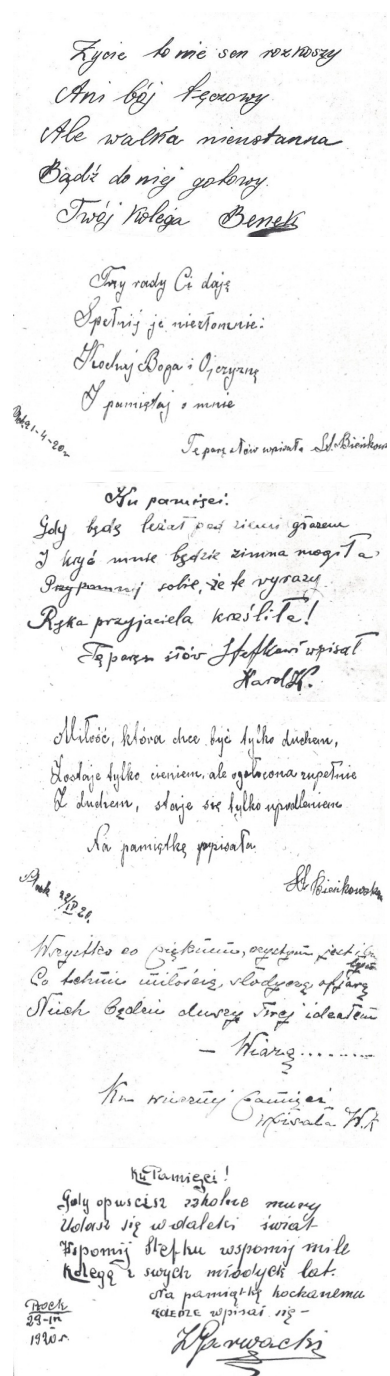 Życie to nie sen rozkoszy
Ani bój tęczowy.
Ale walka nieustanna
Bądź do niej gotowy.
Twój Kolega Benek
Trzy rady Ci daję
Spełnij je niezłomnie:
Kochaj Boga i Ojczyznę
I pamiętaj o mnie
21-4-20r.
Tę parę słów wpisała St. Bieńkow
Ku pamięci.
Gdy będę leżał pod ziemi głazem
I kryć mnie będzie zimna mogiła
Przypomnij sobie, że te wyrazy
Ręka przyjaciela kreśliła!
Tę parę słów Stefkowi wpisał
Karol K.
Miłość, która chce być tylko duchem,
Zostaje tylko cieniem, ale ogołocona zupełnie
Z duchem, staje się tylko upodleniem
Na pamiątkę popisała
Płock 22/IV 20.
St. Bieńkowska
Wszystko co pięknem, czystym jest
Co tchnie miłością, słodyczą, ofiarą
Niech będzie duszy Twej ideałem
— Wiarą........
Ku wiecznej pamięci
wpisała W.K
Ku Pamięci!
Gdy opuscisz szkolne mury
Udasz się w daleki świat
Wspomij Stefku wspomij mile
Kolegę z swych młodych lat.
Na pamiątkę kochanemu
koledze wpisał się —
Płock
29-IV
1920 r.
Z Garwacki